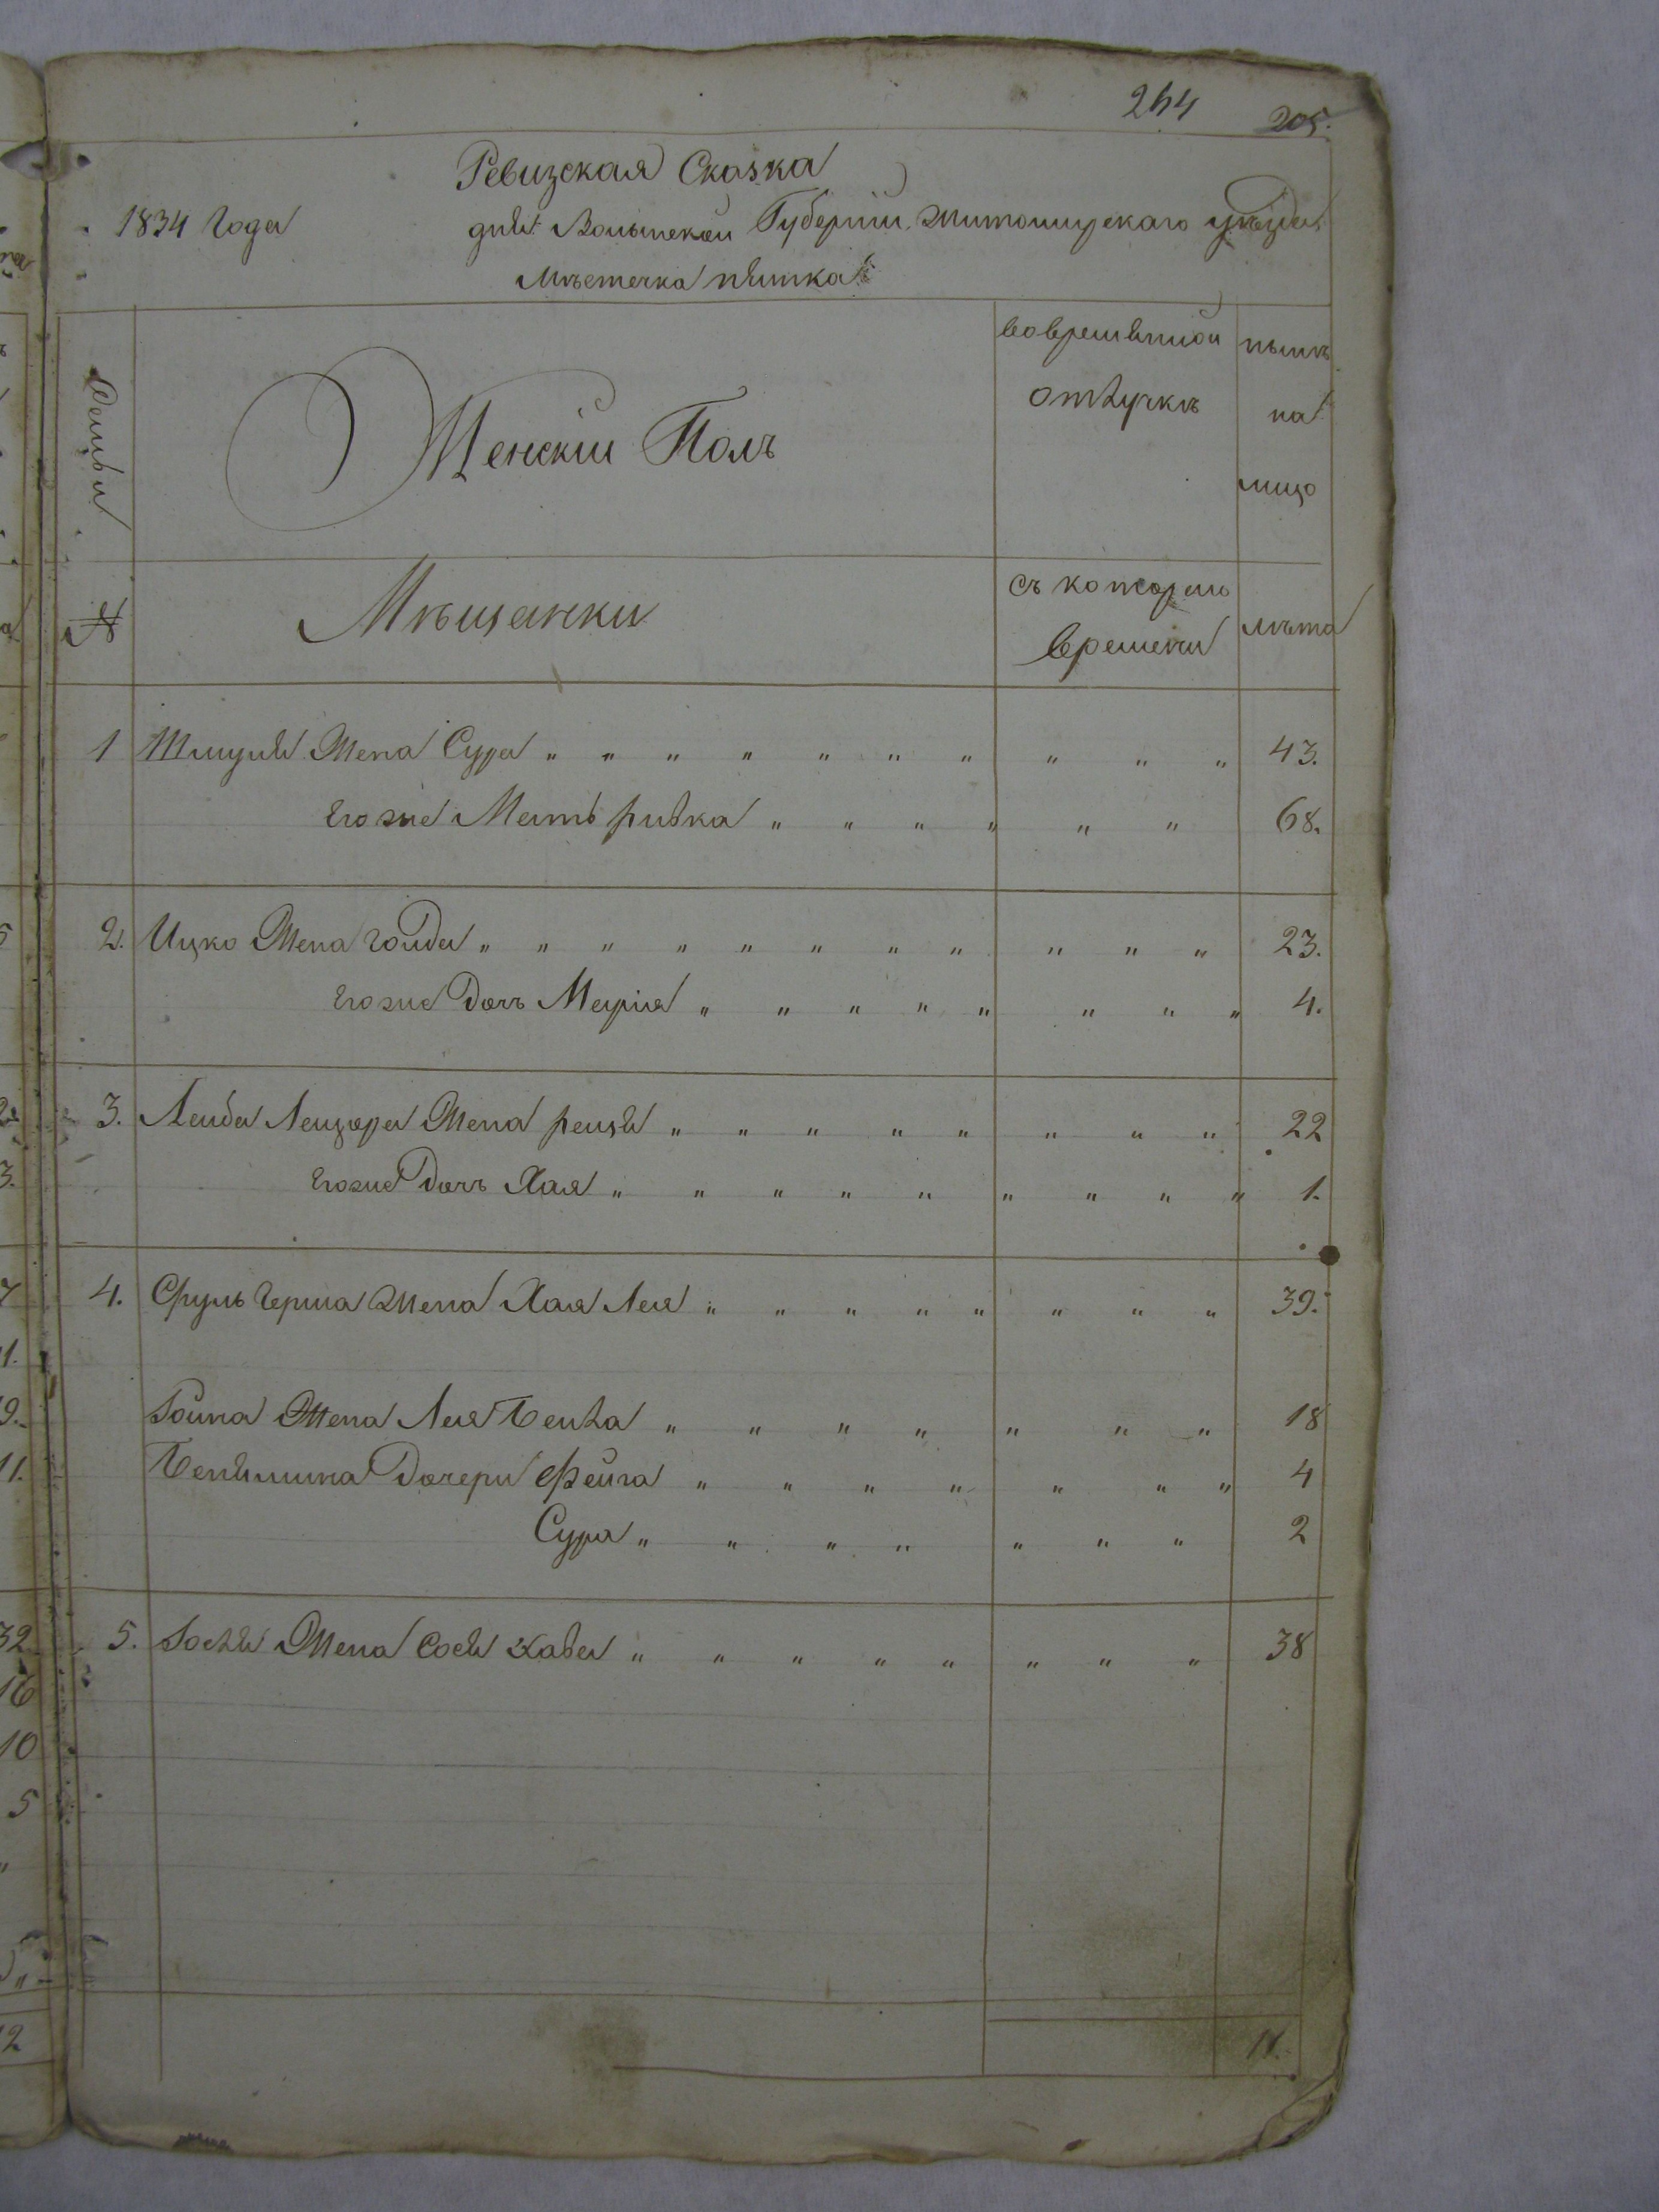 264 205.
Ревизская Сказка
1834 Года дня Волынской Губернии Житомирскаго уѣзда
Мѣстечка пятка
Семьи
Женскiй Полъ
во временной нынѣ
отлучкѣ на
лицо
№ Мѣщанки
съ котораго лѣта
времени
1 Шмуля Жена Сура " " " " " " " " " " 43.
Егоже Мать ривка " " " " " " 68.
2. Ицко Жена Голда " " " " " " " " " " " 23.
Егоже Дочь Марiя " " " " " " " " 4.
3. Лейба Лейзора Жена рейзя " " " " " " " " 22
Егоже Дочь Хая " " " " " " " " " 1.
4. Сруль Герша Жена Хая Лея " " " " " " " " 39.
Жена Лея Бейла " " " " " " " 18
Бенямина Дочери Фейга " " " " " " " 4
Сура " " " " " " " 2
5. Жена Сося хава " " " " " " " " 38
11.